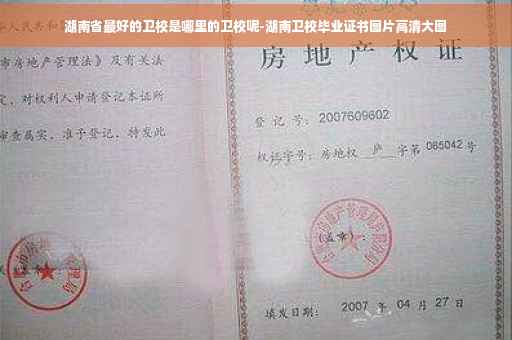 湖南省最好的卫校是哪里的卫校呢-湖南卫校毕业证书图片高清大图
人民共和国
市房地产管理法》及有关法
定，对权利人申请登记本证所
审查属实，准予登记，特发此
房地产权证
登记号：2007609602
权证字号：房地权 庐 字第 085042 号
(盖章)：
填发日期： 2007 年 04 月 27 日